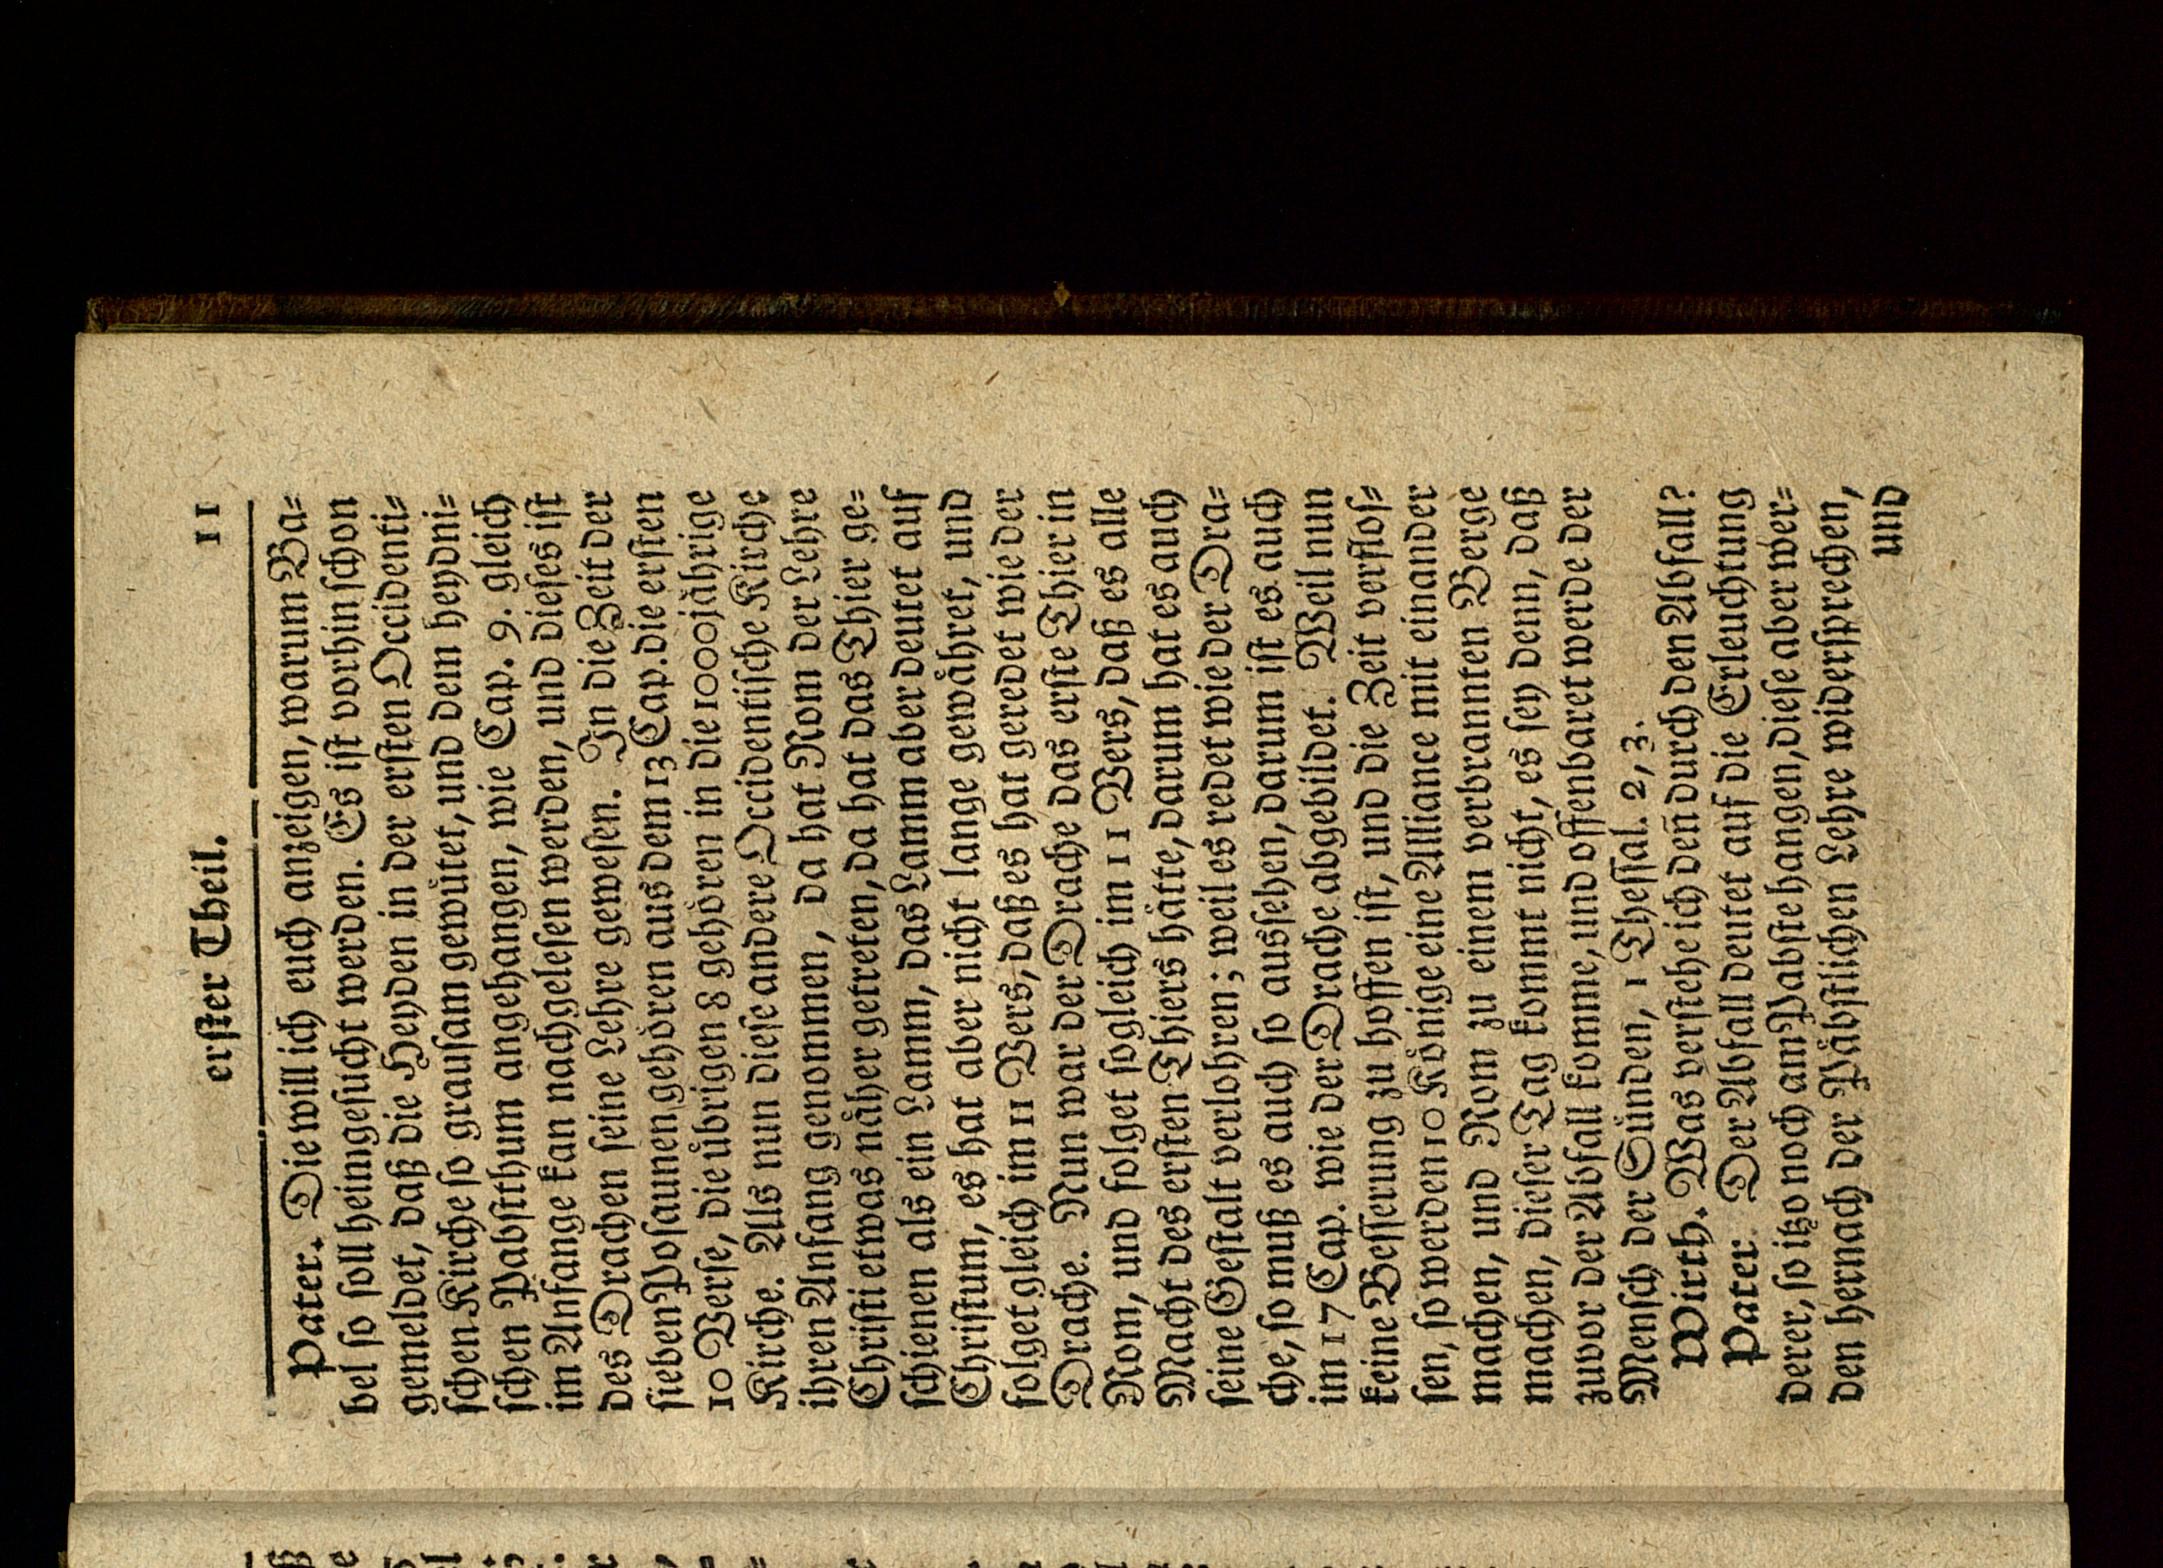 erster Theil. 11
Pater. Die will ich euch anzeigen, warum Ba=
bel so soll heimgesucht werden. Es ist vorhin schon
gemeldet, daß die Heyden in der ersten Occidenti=
schen Kirche so grausam gewütet, und dem heydni=
schen Pabstthum angehangen, wie Cap. 9. gleich
im Anfange kan nachgelesen werden, und dieses ist
des Drachen seine Lehre gewesen. In die Zeit der
sieben Posaunen gehören aus dem 13 Cap. die ersten
10 Verse, die übrigen 8 gehören in die 1000jährige
Kirche. Als nun diese andere Occidentische Kirche
ihren Anfang genommen, da hat Rom der Lehre
Christi etwas näher getreten, da hat das Thier ge=
schienen als ein Lamm, das Lamm aber deutet auf
Christum, es hat aber nicht lange gewähret, und
folget gleich im 11 Vers, daß es hat geredet wie der
Drache. Nun war der Drache das erste Thier in
Rom, und folget sogleich im 11 Vers, daß es alle
Macht des ersten Thiers hätte, darum hat es auch
seine Gestalt verlohren; weil es redet wie der Dra=
che, so muß es auch so aussehen, darum ist es auch
im 17 Cap. wie der Drache abgebildet. Weil nun
keine Besserung zu hoffen ist, und die Zeit verflos=
sen, so werden 10 Könige eine Alliance mit einander
machen, und Rom zu einem verbrannten Berge
machen, dieser Tag kommt nicht, es sey denn, daß
zuvor der Abfall komme, und offenbaret werde der
Mensch der Sünden, 1 Thessal. 2, 3.
Wirth. Was verstehe ich deñ durch den Abfall?
Pater. Der Abfall deutet auf die Erleuchtung
derer, so itzo noch am Pabste hangen, diese aber wer=
den hernach der Päbstlichen Lehre widersprechen,
und